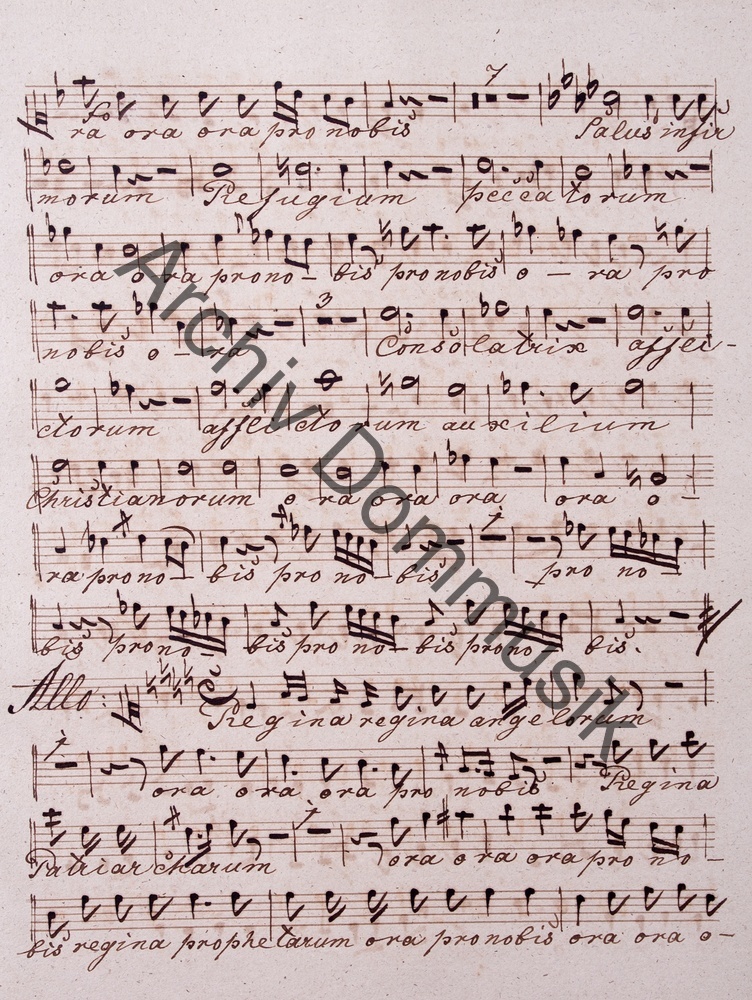 7
fo
ra ora ora pro nobis Salus infir
morum Refugium peccatorum
ora ora prono - bis pro nobis o - ra pro
3
nobis o - ra Consolatrix afflei -
ctorum afflictorum auxilium
Christianorum o ra ora ora ora o -
1
ra prono - bis pro no - bis pro no -
bis prono - bis pro no - bis prono - bis.
Allo: C Regina regina angelorum
1
ora ora ora pro nobis Regina
1
Patriarcharum ora ora ora pro no -
bis regina prophetarum ora pro nobis ora ora o -
Archiv Dommusik